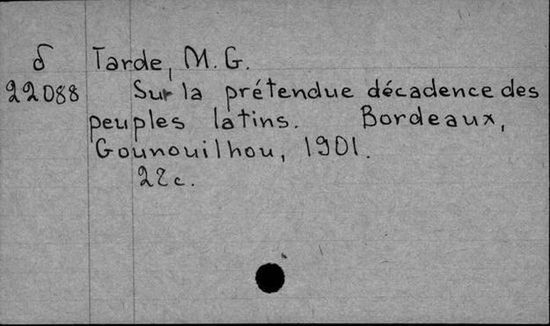 δ Tarde, M. G.
22088 Sur la prétendue décadence des
peuples latins. Bordeaux,
Gounouilhou, 1901.
22 c.